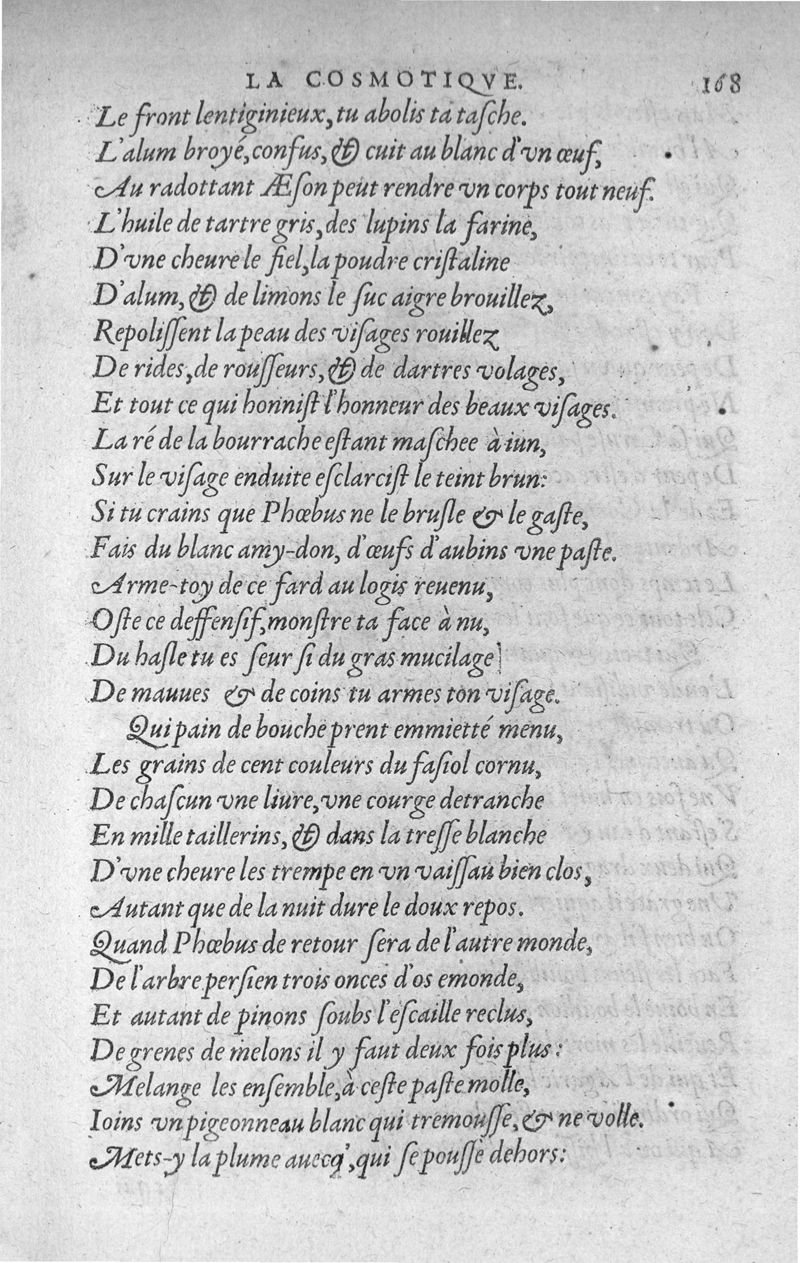 LA COSMOTIQVE. 168
Le front lentiginieux, tu abolis ta tasche.
L'alum broyé, confus, & cuit au blanc d'vn œuf,
Au radottant Æson peut rendre vn corps tout neuf.
L'huile de tartre gris, des lupins la farine,
D'vne cheure le fiel, la poudre cristaline
D'alum, & de limons le suc aigre brouillez,
Repolissent la peau des visages rouillez
De rides, de rousseurs, & de dartres volages,
Et tout ce qui honnist l'honneur des beaux visages.
La ré de la bourrache estant maschee à iun,
Sur le visage enduite esclarcist le teint brun:
Si tu crains que Phœbus ne le brusle & le gaste,
Fais du blanc amy-don, d'œufs d'aubins vne paste.
Arme-toy de ce fard au logis reuenu,
Oste ce deffensif, monstre ta face à nu,
Du hasle tu es seur si du gras mucilage
De mauues & de coins tu armes ton visage.
Qui pain de bouche prent emmietté menu,
Les grains de cent couleurs du fasiol cornu,
De chascun vne liure, vne courge detranche
En mille taillerins, & dans la tresse blanche
D'vne cheure les trempe en vn vaissau bien clos,
Autant que de la nuit dure le doux repos.
Quand Phœbus de retour sera de l'autre monde,
De l'arbre persien trois onces d'os emonde,
Et autant de pinons soubs l'escaille reclus,
De grenes de melons il y faut deux fois plus:
Melange les ensemble, à ceste paste molle,
Ioins vn pigeonneau blanc qui tremousse, & ne volle.
Mets-y la plume auecq', qui se pousse dehors: